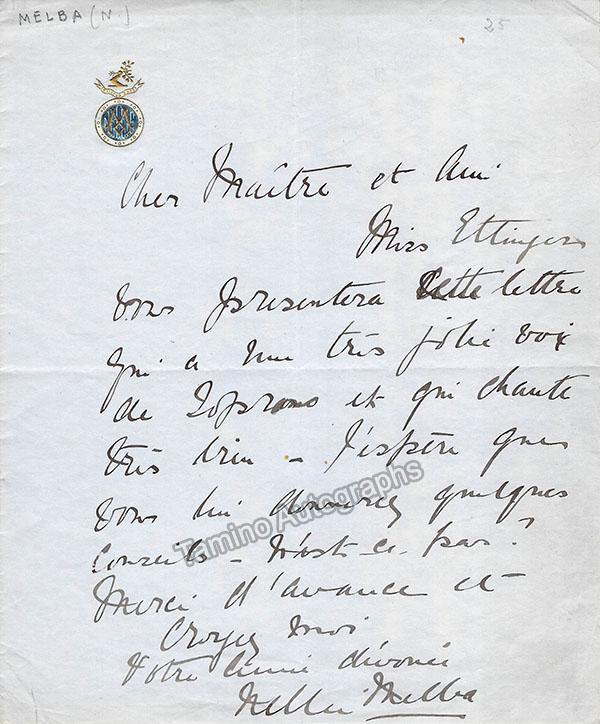 MELBA (N.)
25
Cher Maître et Ami
Miss Ettinger
vous presentera cette lettre
qui a une très jolie voix
de Soprano et qui chante
très bien – J'espère que
vous lui donnerez quelques
conseils – n'est-ce pas?
Merci d'avance et
Croyez moi
Votre amie dévouée
Nellie Melba
Tamino Autographs